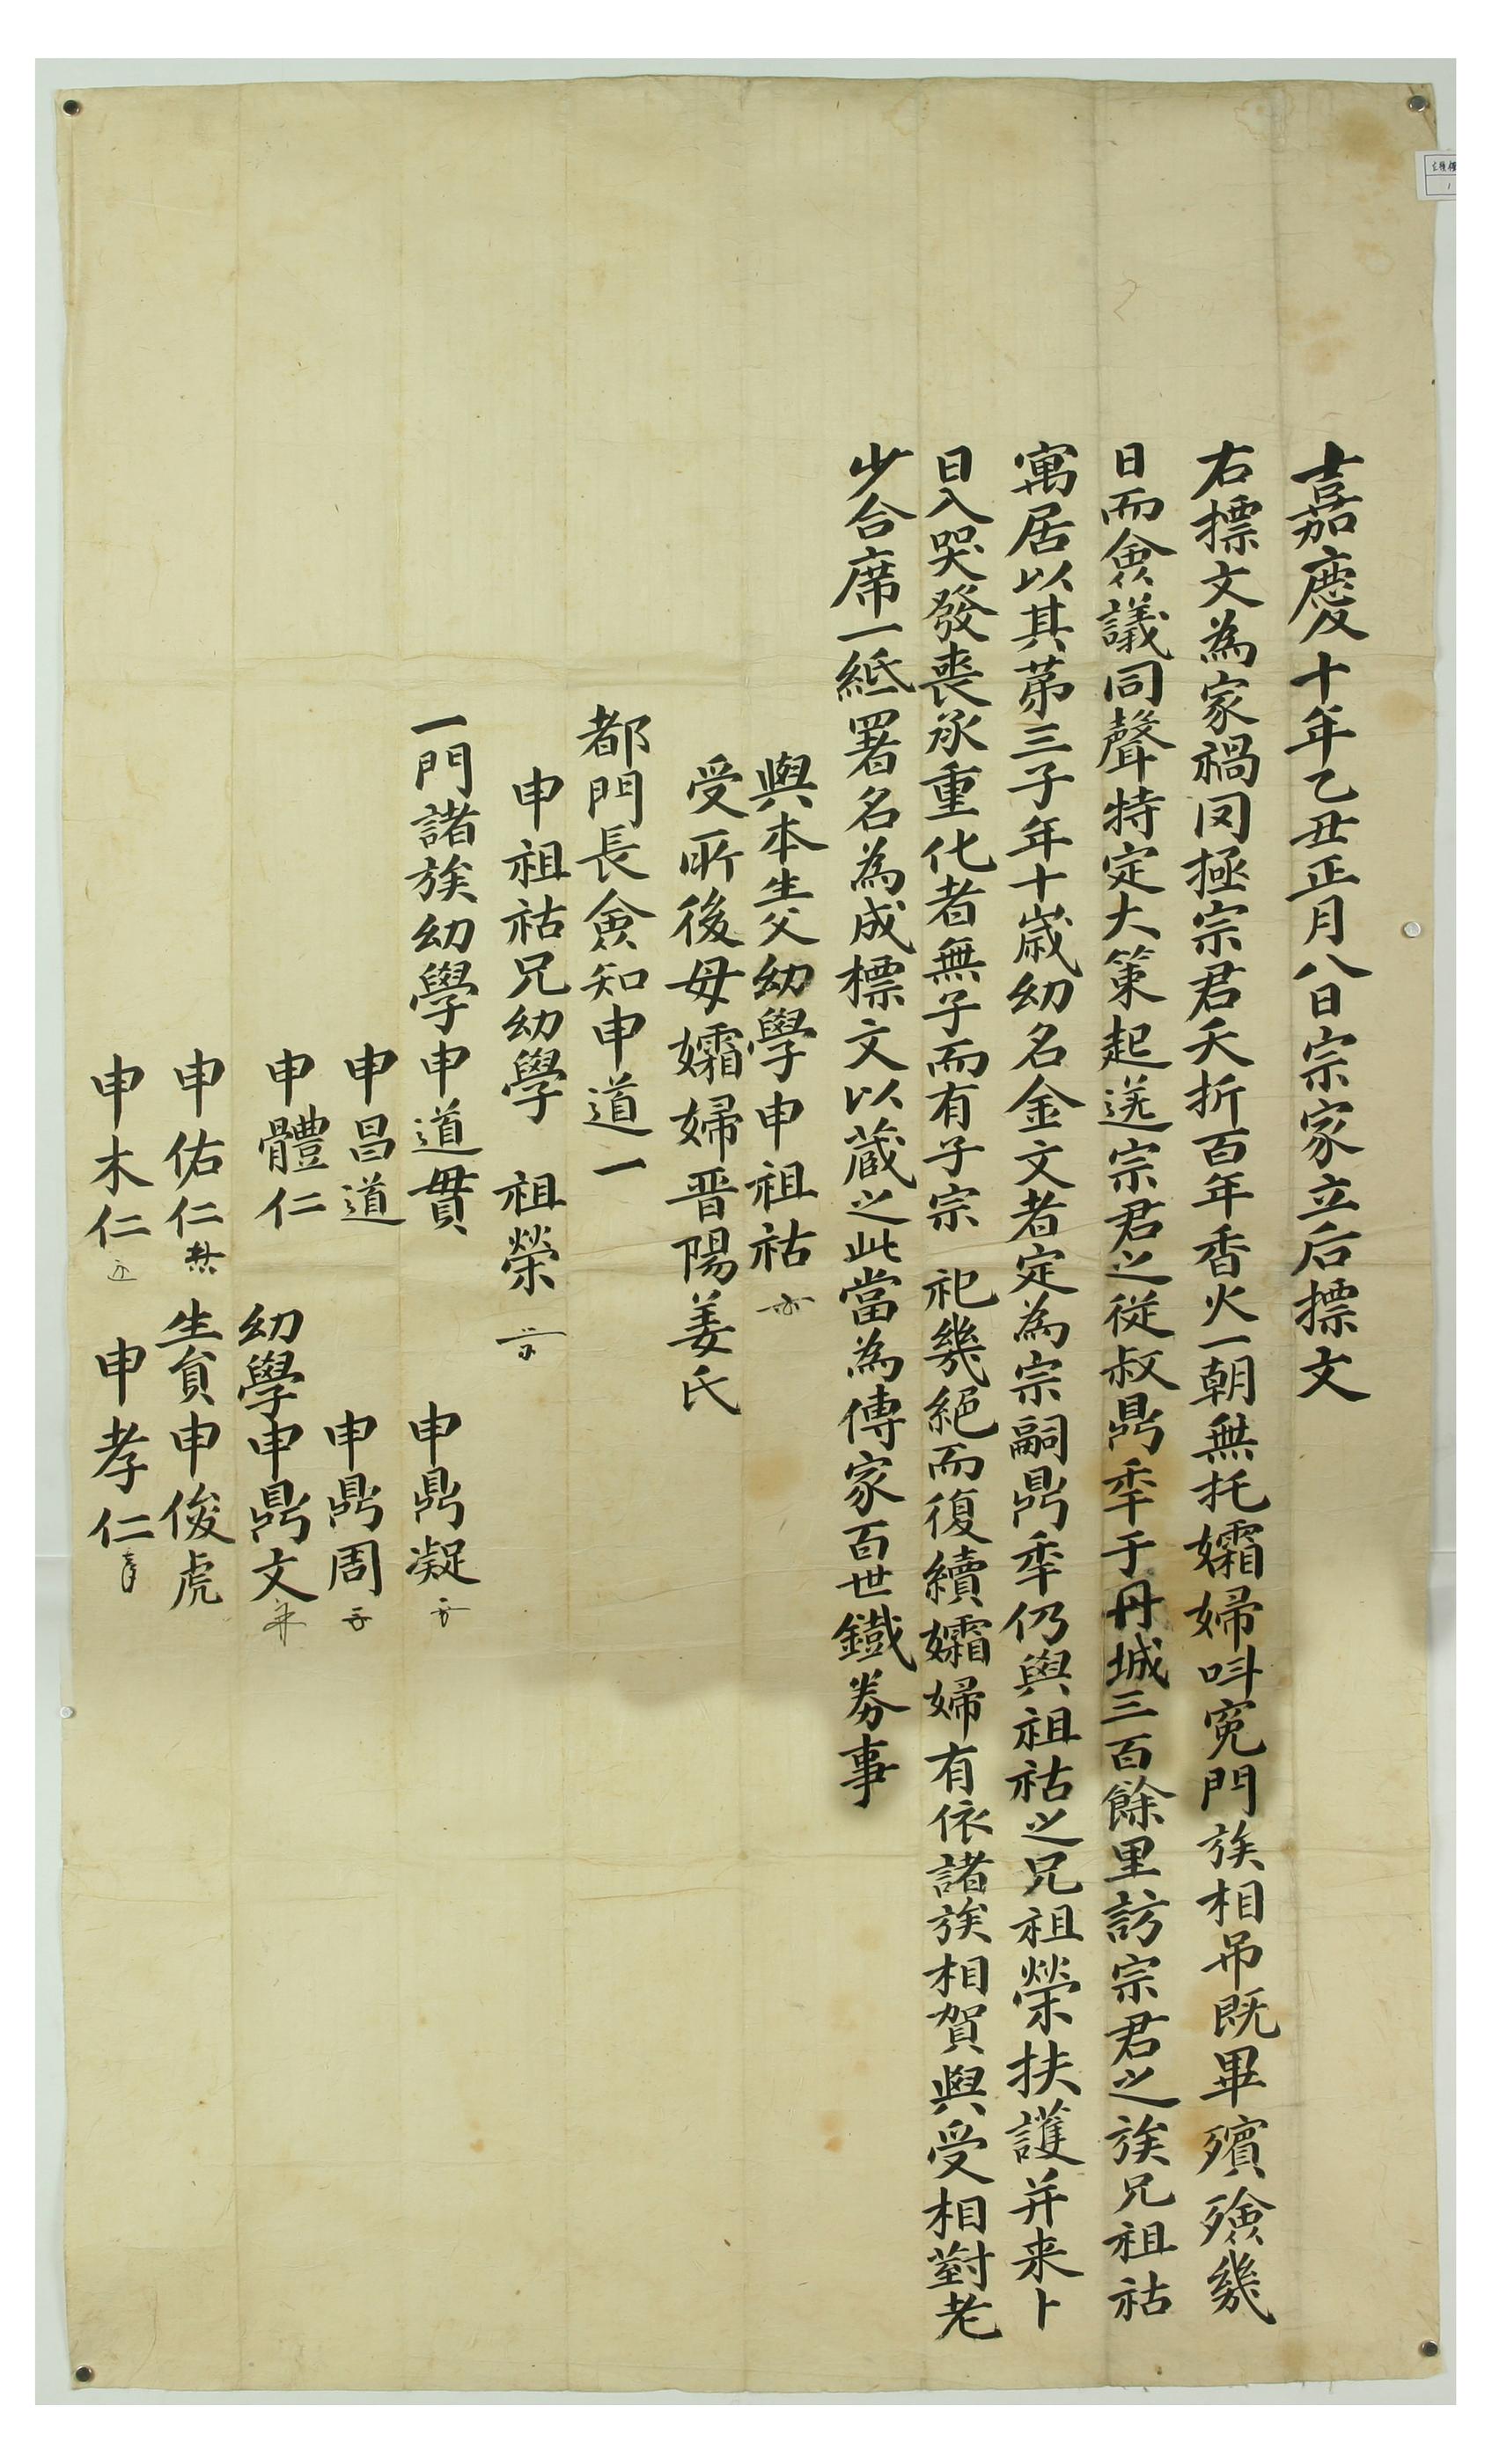 嘉慶十年乙丑正月八日宗家立后標文
右標文為家禍罔極宗君夭折百年香火一朝無托孀婦呌寃門族相吊既畢殯殮幾
日而會議同聲特定大策起送宗君之從叔鼎秊于丹城三百餘里訪宗君之族兄祖祜
寓居以其第三子年十歲幼名金文者定為宗嗣鼎秊仍與祖祜之兄祖榮扶護并来卜
日入哭發喪承重化者無子而有子宗祀幾絕而復續孀婦有依諸族相賀與受相對老
少合席一紙署名為成標文以蔵之此當為傳家百世鐵券事
與本生父幼學申祖祜
受所後母孀婦晉陽姜氏
都門長僉知申道一
申祖祜兄幼學 祖榮
一門諸族幼學申道貫 申鼎凝
申昌道 申鼎周
申體仁 幼學申鼎文
申佑仁 生員申俊虎
申木仁 申孝仁